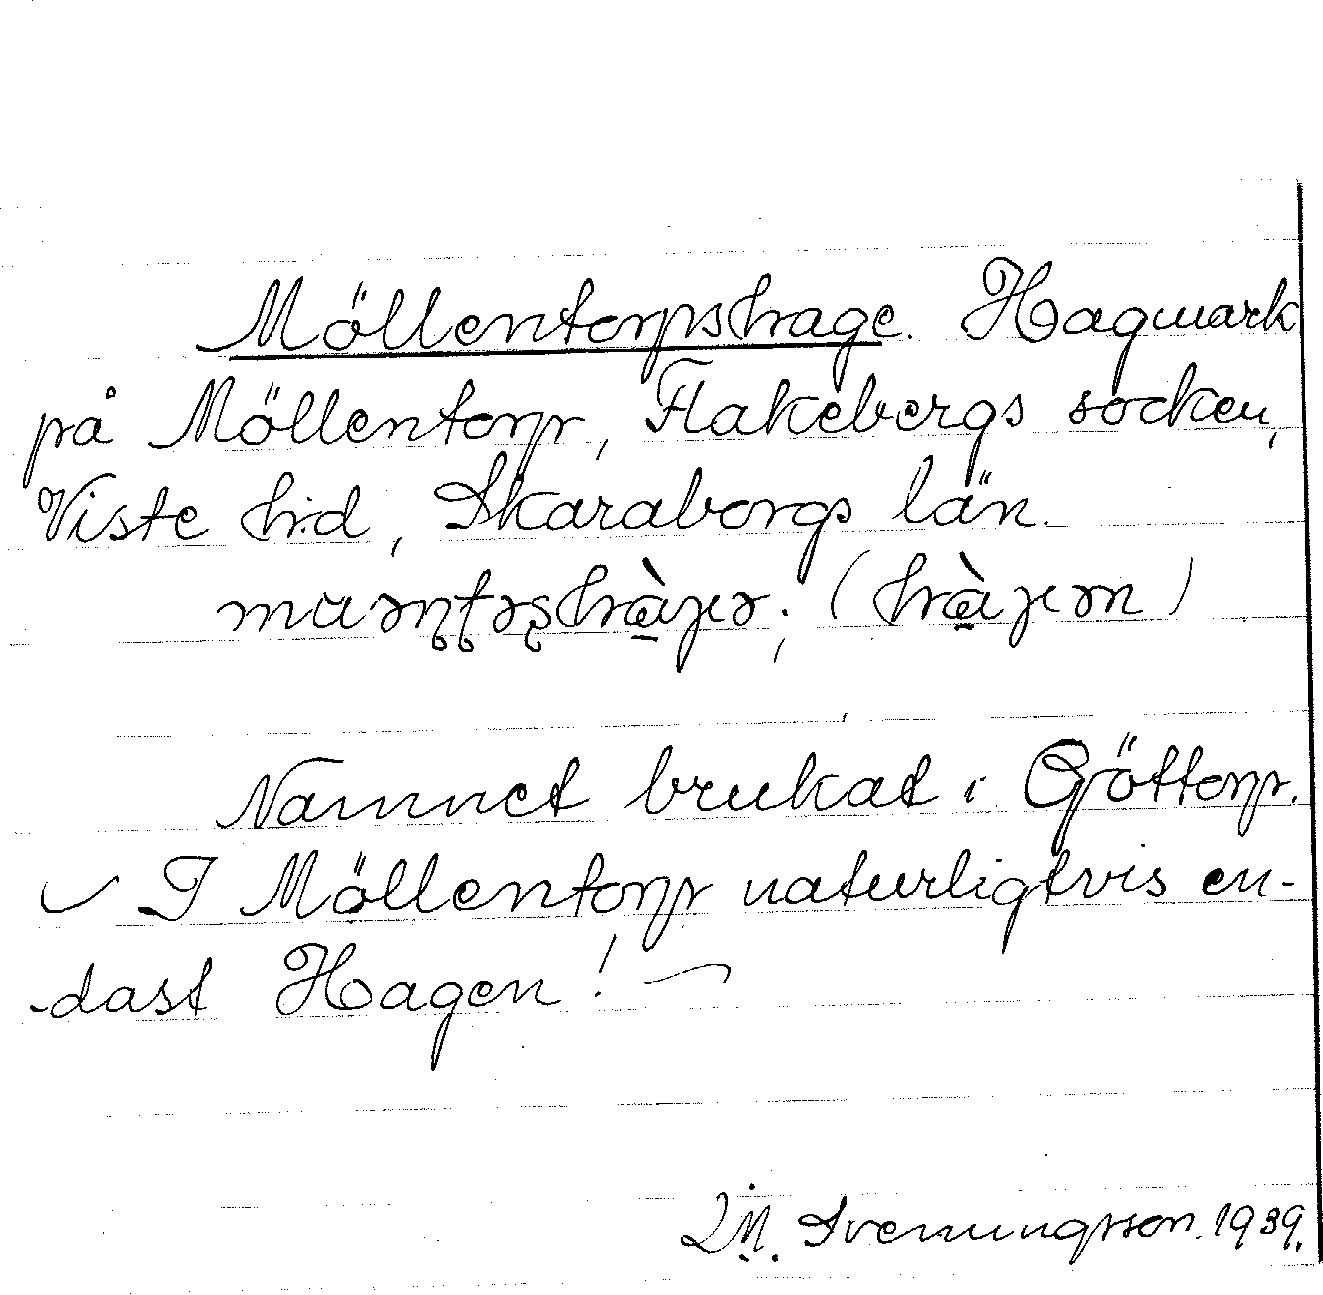 Möllentorpshage. Hagmark
på Möllentorp, Flakebergs socken,
Viste hd, Skaraborgs län.
Namnet brukat i Göttorp.
I Möllentorp naturligtvis en-
dast Hagen!
Svenungsson. 1939.